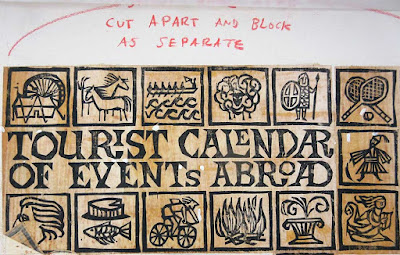 CUT APART AND BLOCK
AS SEPARATE
TOURIST CALENDAR
OF EVENTS ABROAD